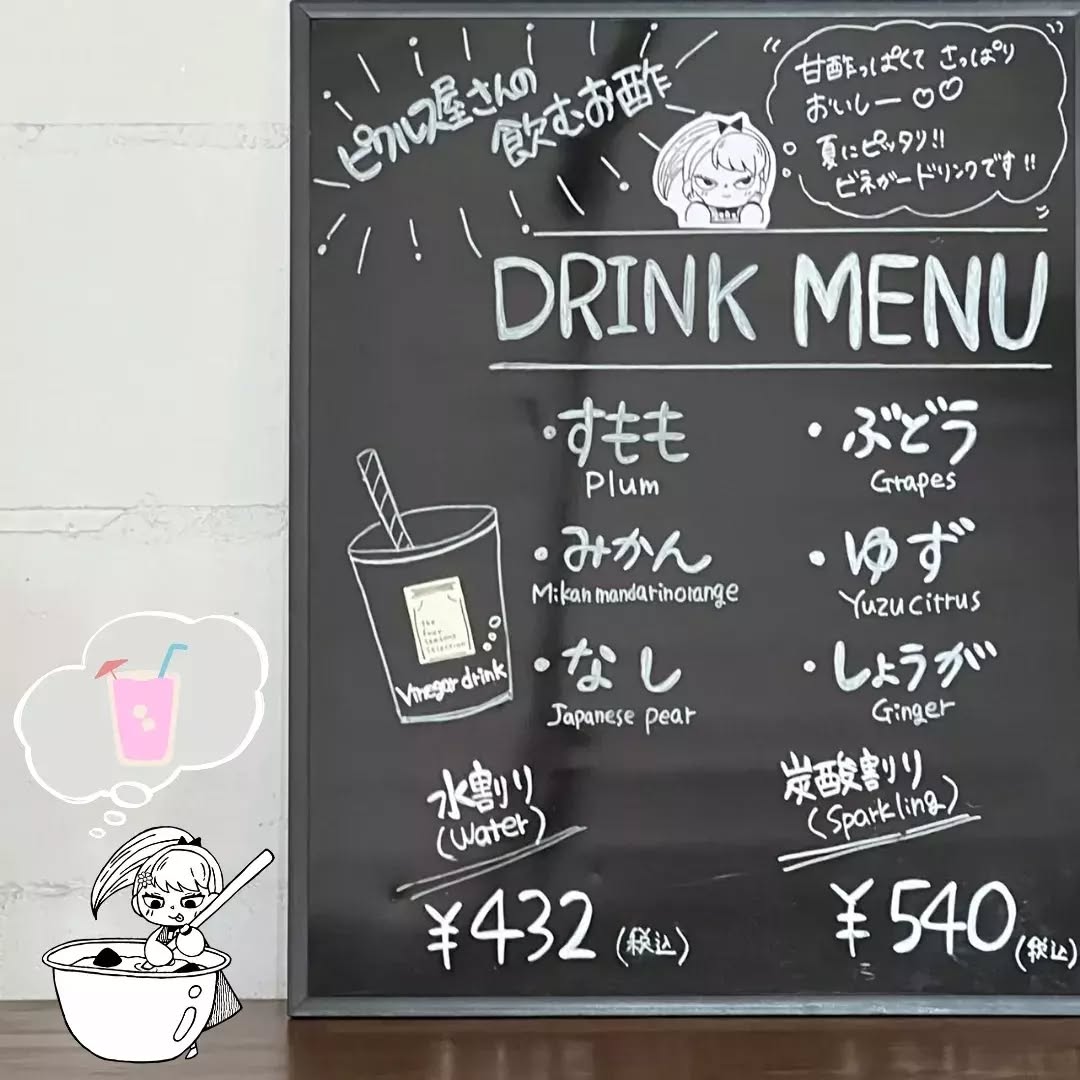 ピクルス屋さんの
飲むお酢
甘酢っぱくて さっぱり
おいしー♡♡
夏にピッタリ!!
ビネガードリンクです!!
DRINK MENU
・すもも
Plum
・ぶどう
Grapes
・みかん
Mikan mandarin orange
・ゆず
Yuzu citrus
・なし
Japanese pear
・しょうが
Ginger
the
four
seasons
selection
Vinegar drink
水割り
(Water)
¥432 (税込)
炭酸割り
(Sparkling)
¥540 (税込)